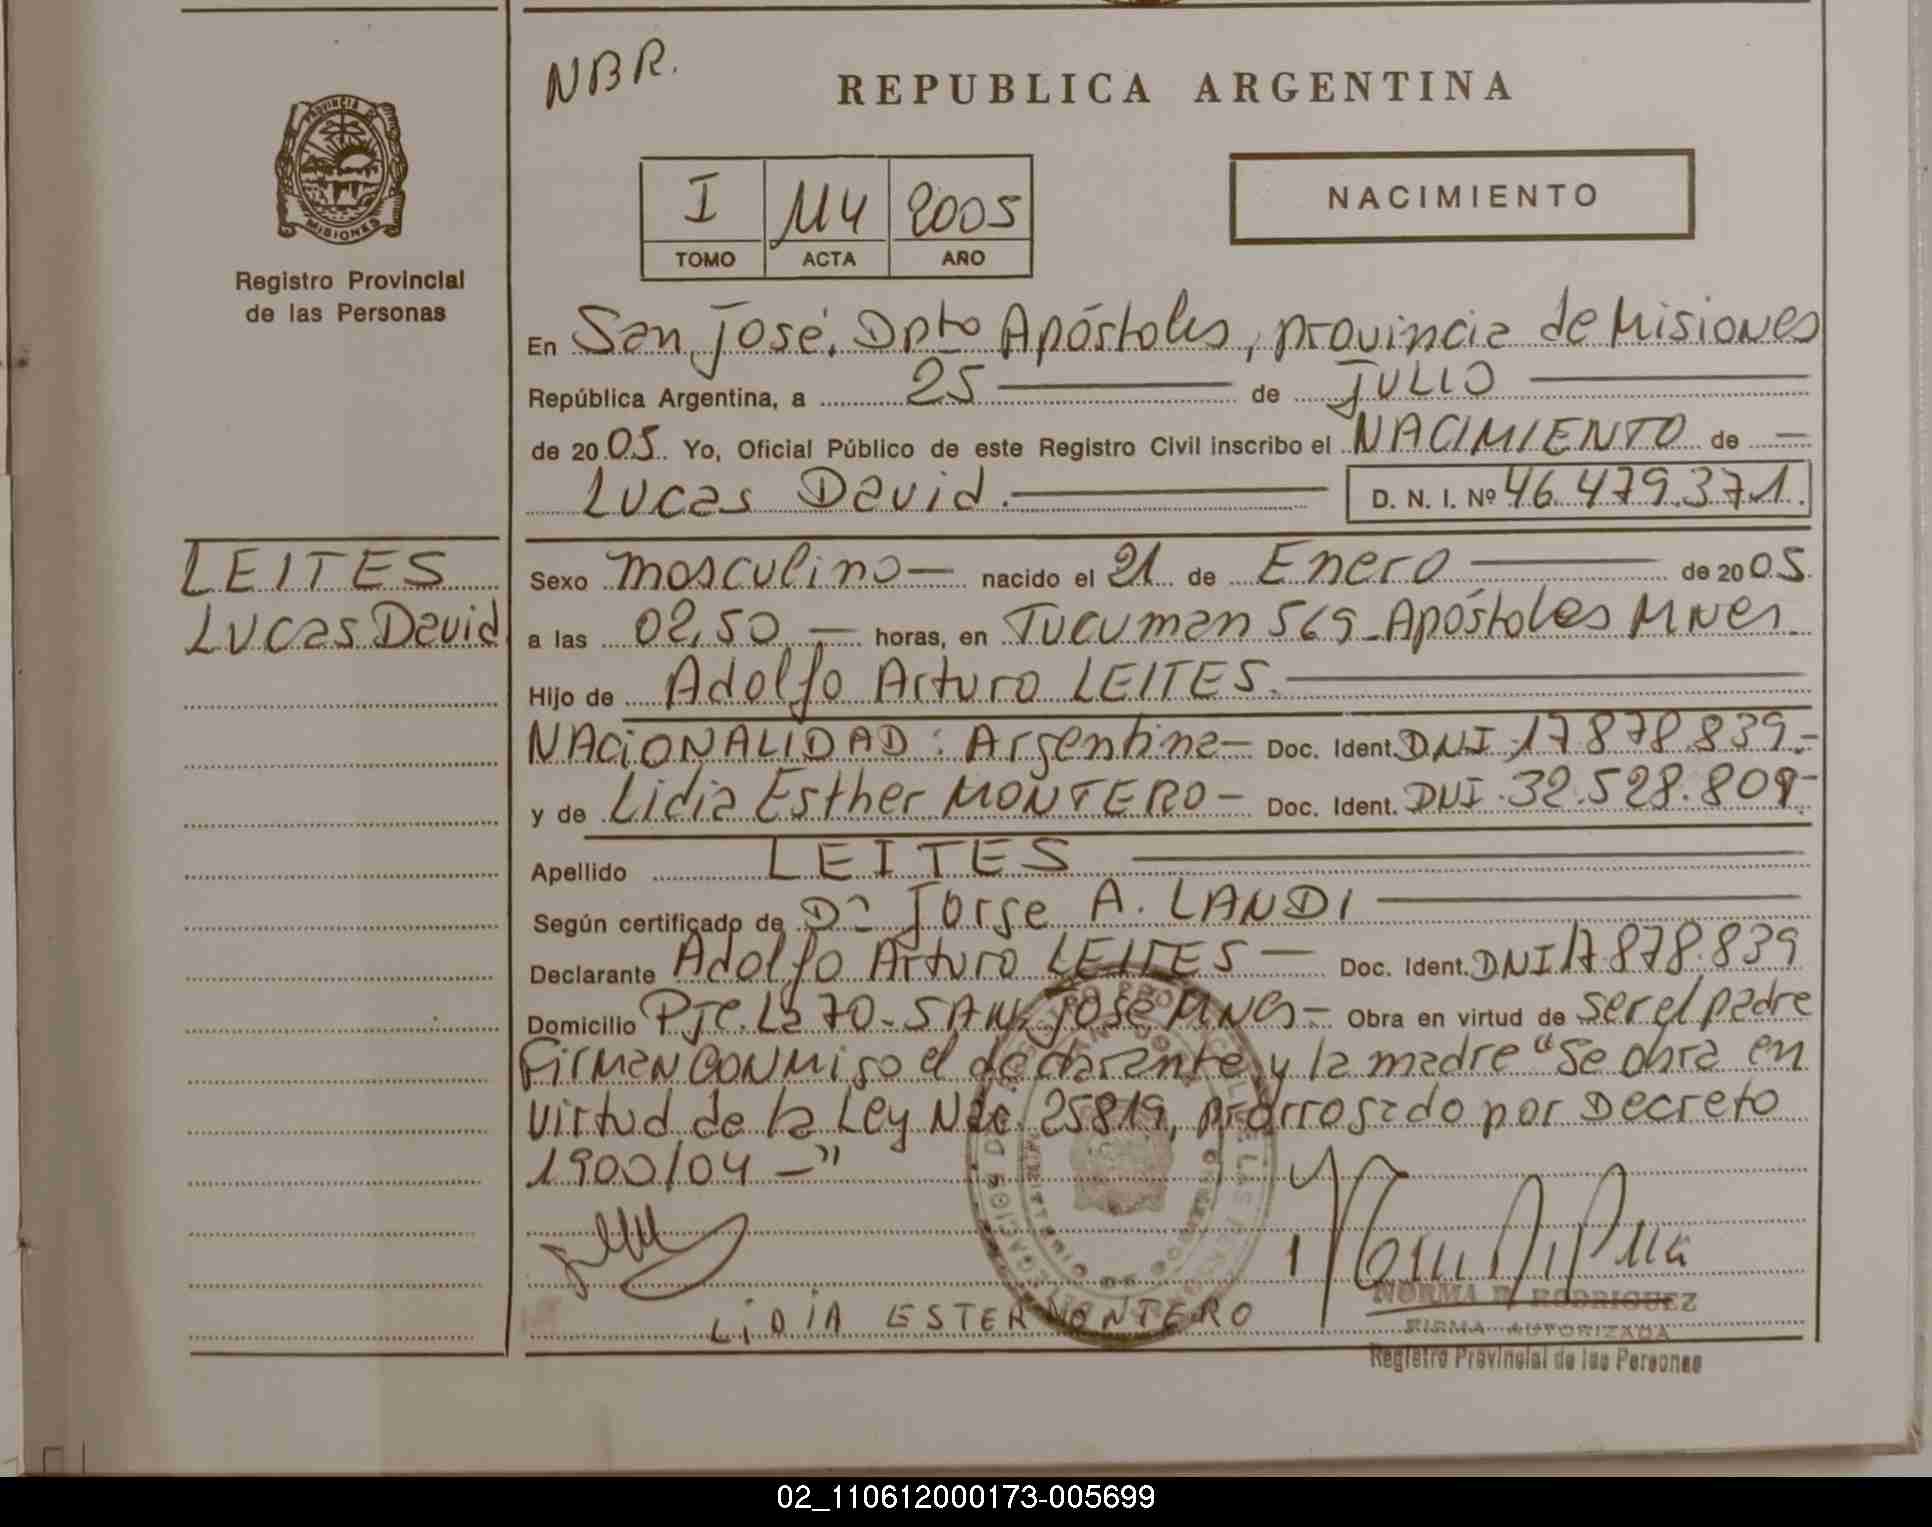 NBR.
REPUBLICA ARGENTINA
PROVINCIA DE
MISIONES
Registro Provincial
de las Personas
NACIMIENTO
I 114 2005
TOMO ACTA AÑO
En San José. Dpto Apóstoles, provincia de Misiones
República Argentina, a 25 de JULIO
de 2005. Yo, Oficial Público de este Registro Civil inscribo el NACIMIENTO de —
Lucas David. D. N. I. Nº 46.479.371.
LEITES
Lucas David
Sexo masculino — nacido el 21 de Enero de 2005.
a las 02,50 — horas, en Tucuman 569 - Apóstoles Mnes.
Hijo de Adolfo Arturo LEITES.
NACIONALIDAD: Argentina — Doc. Ident. DNI 17.878.839.-
y de Lidia Esther MONTERO — Doc. Ident. DNI. 32.528.809-
Apellido LEITES
Según certificado de Dr Jorge A. LANDI
Declarante Adolfo Arturo LEITES — Doc. Ident. DNI 17.878.839
Domicilio Pje. L2 70 - SAN José Mnes — Obra en virtud de ser el padre
Firman conmigo el declarante y la madre "Se obra en
virtud de la Ley Nac. 25819, prorrogado por Decreto
1900/04 —"
LiDiA ESTER MONTERO
NORMA B. RODRIGUEZ
FIRMA AUTORIZADA
Registro Provincial de las Personas
02_110612000173-005699